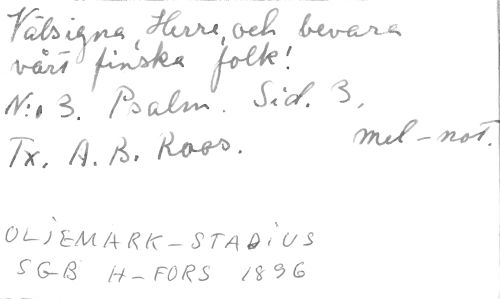 Välsigna, Herre, och bevara
vårt finska folk!
N:o 3. Psalm. Sid. 3,
mel-not.
Tx. A. B. Roos.
OLJEMARK-STADIUS
SGB H-FORS 1896